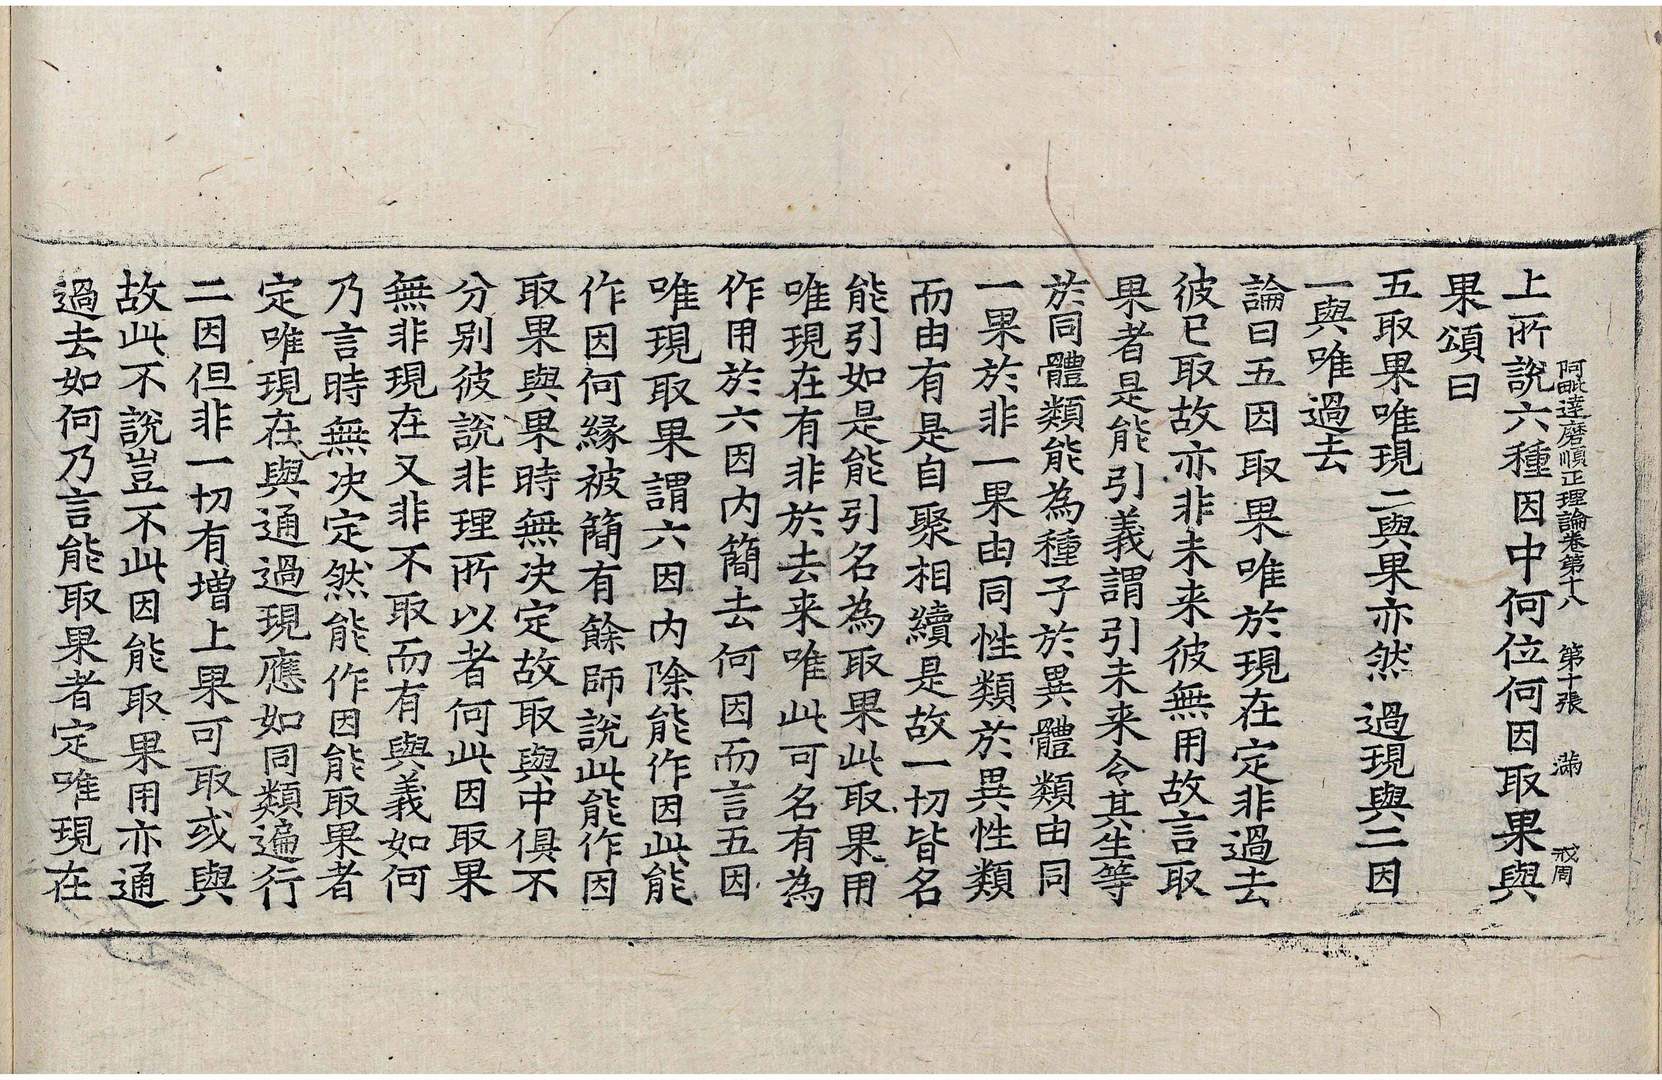 阿毗達磨順正理論卷第十八 第十張 滿 戒周
上所說六種因中何位何因取果與
果頌曰
五取果唯現二與果亦然過現與二因
一與唯過去
論曰五因取果唯於現在定非過去
彼已取故亦非未来彼無用故言取
果者是能引義謂引未来令其生等
於同體類能為種子於異體類由同
一果於非一果由同性類於異性類
而由有是自聚相續是故一切皆名
能引如是能引名為取果此取果用
唯現在有非於去来唯此可名有為
作用於六因内簡去何因而言五因
唯現取果謂六因内除能作因此能
作因何緣被簡有餘師說此能作因
取果與果時無决定故取與中俱不
分別彼說非理所以者何此因取果
無非現在又非不取而有與義如何
乃言時無决定然能作因能取果者
定唯現在與通過現應如同類遍行
二因但非一切有增上果可取或與
故此不說豈不此因能取果用亦通
過去如何乃言能取果者定唯現在